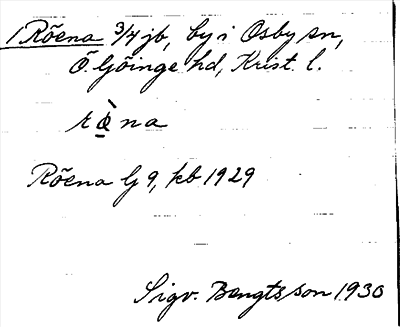 1 Röena 3/4 jb, by i Osby sn,
Ö. Göinge hd, Krist. l.
Röena G 9, kb 1929
Sigv. Bengtsson 1930